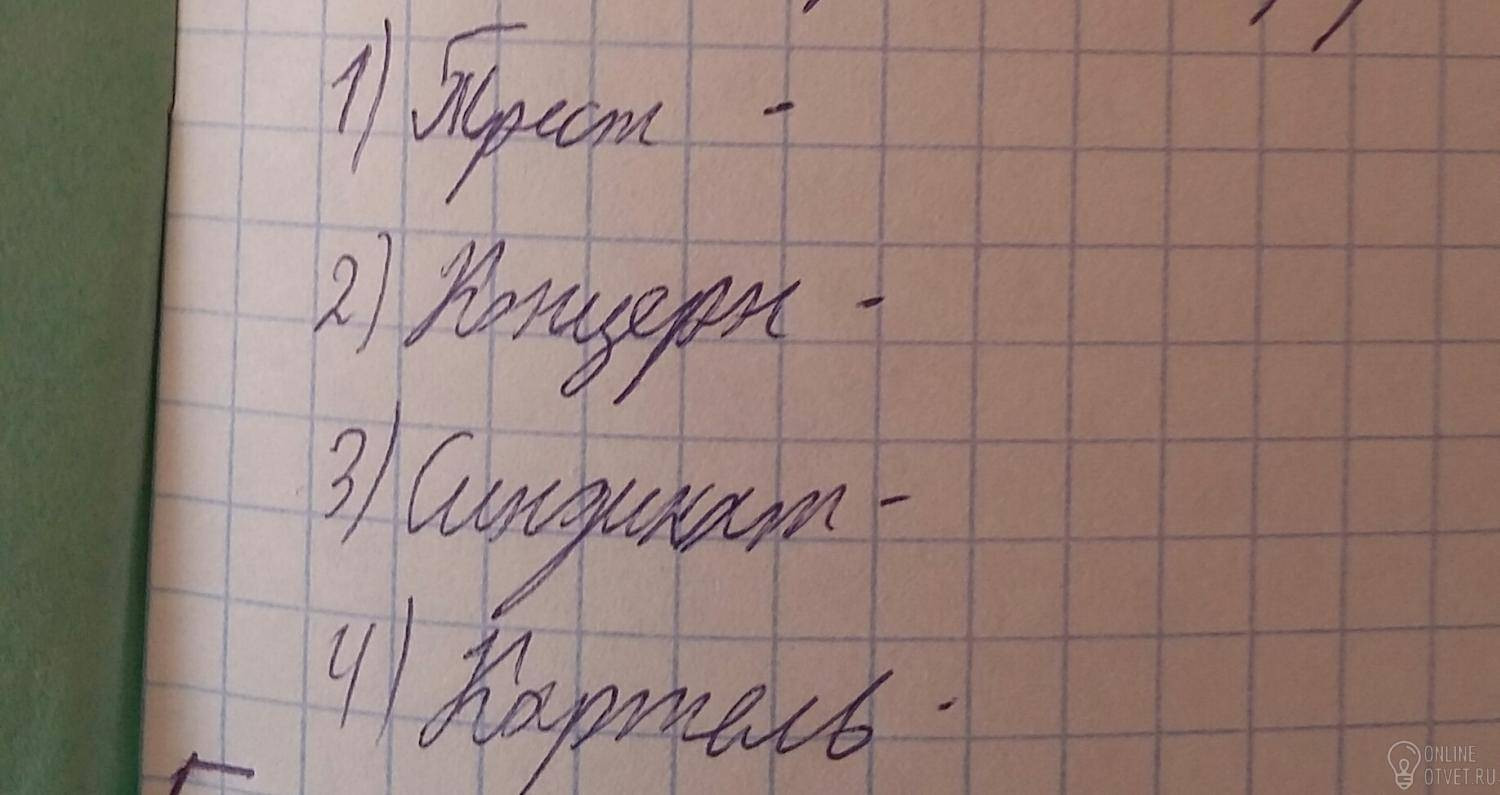 1) Трест -
2) Концерн -
3) Синдикат -
4) Картель -
ONLINE
OTVET.RU